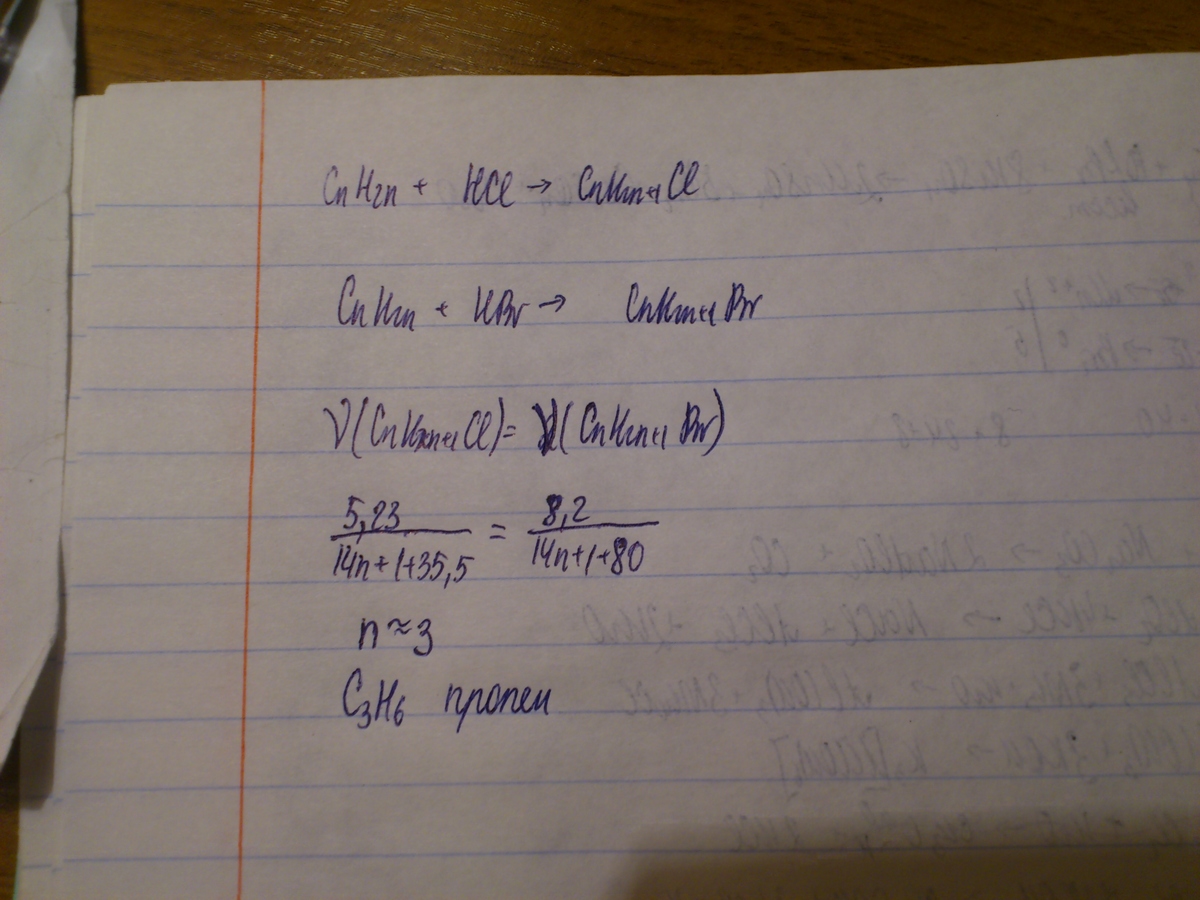 CnH2n + HCl → CnH2n+1Cl
CnH2n + HBr → CnH2n+1Br
ν(CnH2n+1Cl) = ν(CnH2n+1Br)
5,23 / 14n+1+35,5 = 8,2 / 14n+1+80
n ≈ 3
C3H6 пропен